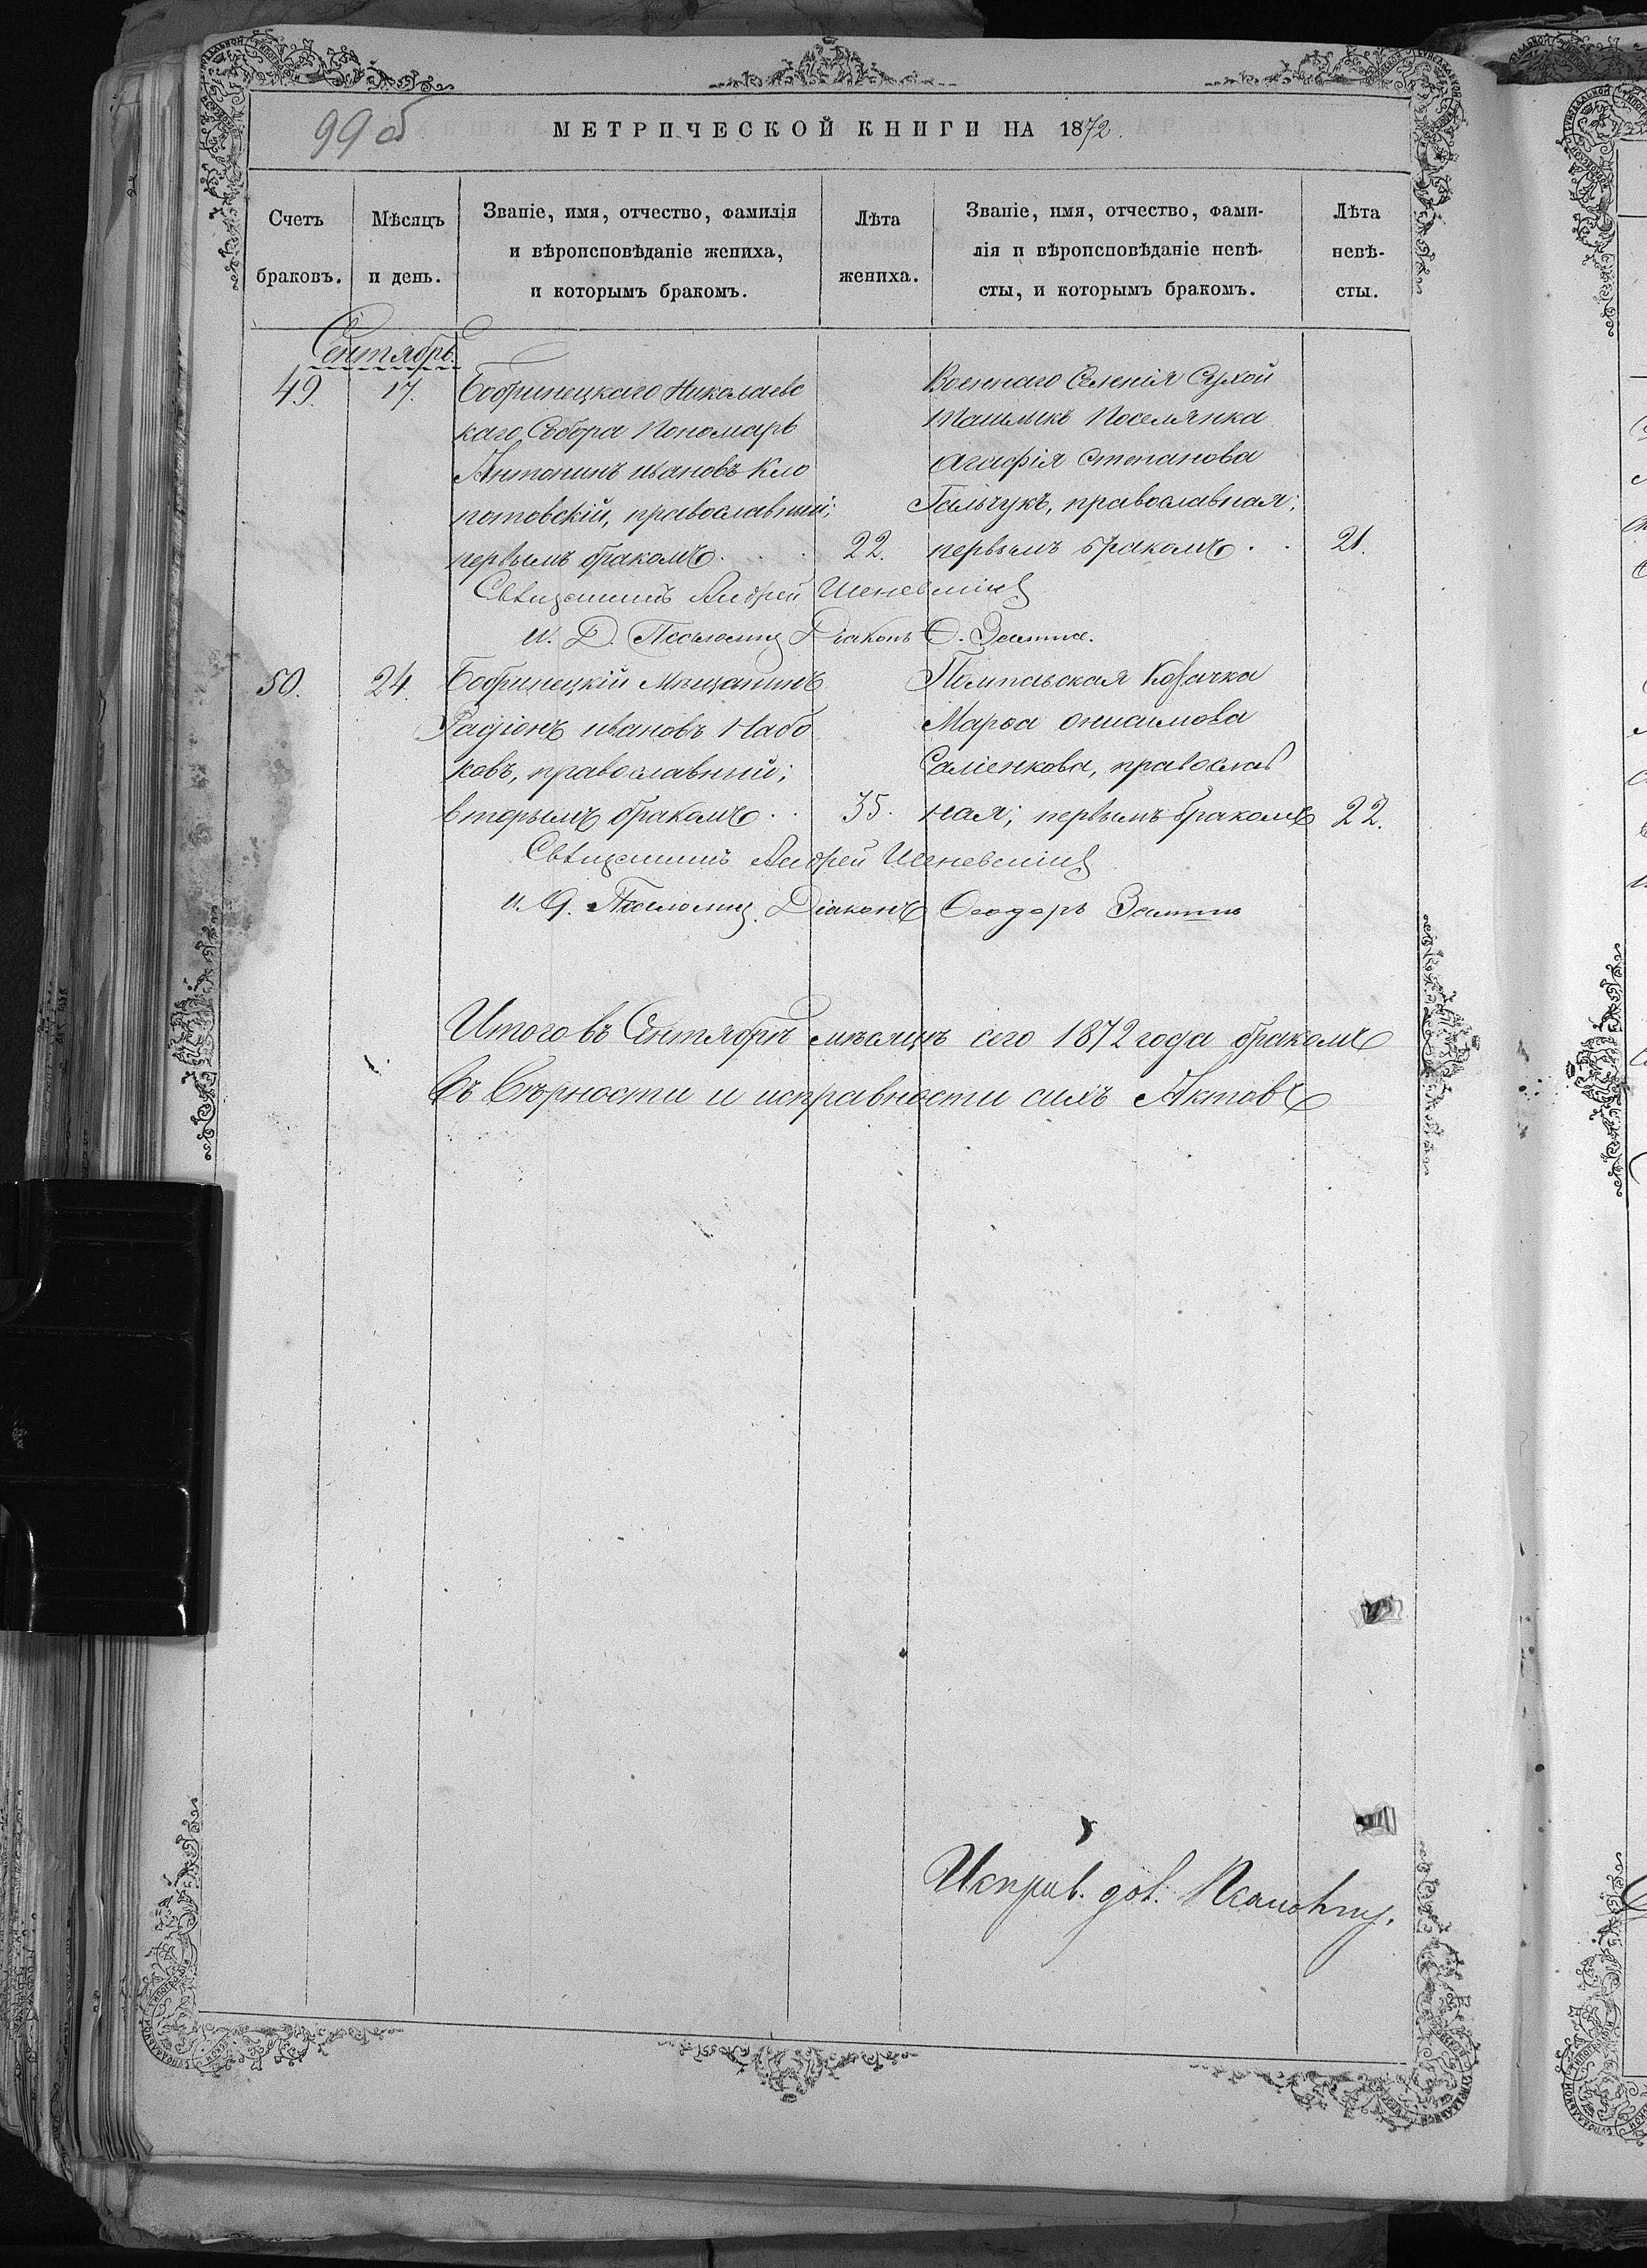 99 об
МЕТРИЧЕСКОЙ КНИГИ НА 1872.
Счетъ браковъ.
Мѣсяцъ и день.
Званіе, имя, отчество, фамилія
и вѣроисповѣданіе жениха,
и которымъ бракомъ.
Лѣта жениха.
Званіе, имя, отчество, фами-
лія и вѣроисповѣданіе невѣ-
сты, и которымъ бракомъ.
Лѣта невѣ-
сты.
Сентябрь
49. 17.
Бобринецкаго Николаевс
каго Собора Пономарь
Антонинъ ивановъ Кло
потовскій, православный;
первымъ бракомъ . . . 22.
Военнаго Селенія Сухой
Ташлыкъ Поселянка
Агафія Степанова
Гальчукъ, православная;
первымъ бракомъ . . 21.
Священникъ Андрей
и. Д. Псаломщ Діаконъ Ѳ.
50. 24.
Бобринецкій Мѣщанинъ
Радіонъ ивановъ Набо
ковъ, православный;
вторымъ бракомъ . . 35.
Козачка
Марѳа Онисимова
Саліенкова, православ
ная; первымъ бракомъ 22.
Священникъ Андрей
и. Д. Псаломщ. Діаконъ Ѳеодоръ
Итого въ Сентябрѣ мѣсяцѣ сего 1872 года бракомъ
Въ вѣрности и исправности сихъ Актовъ
Исправ. дол.